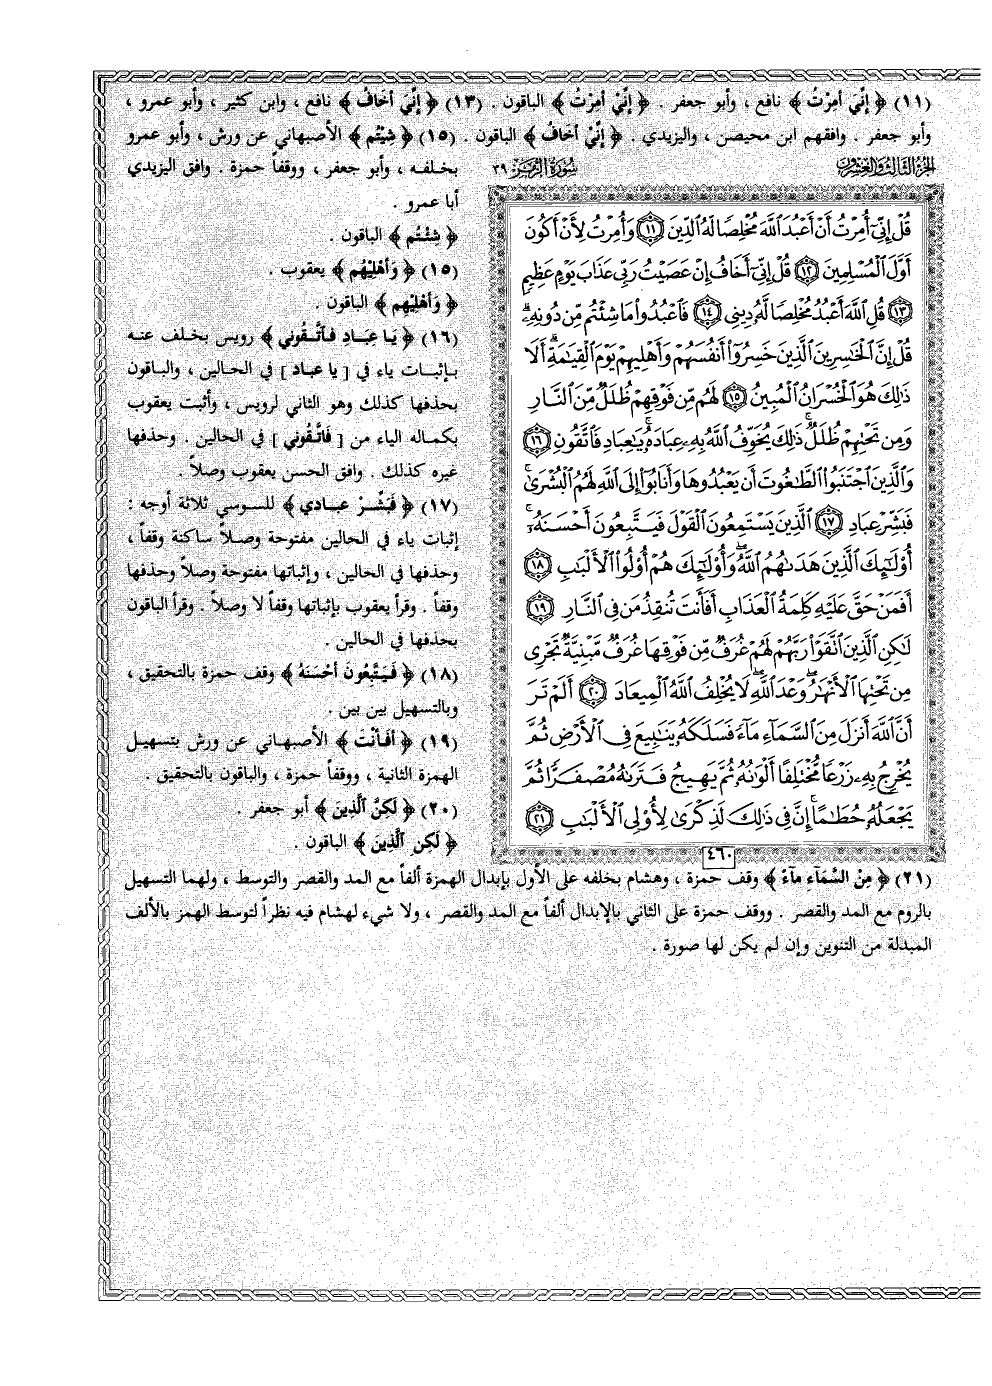 (١١) ﴿ إِنِّيَ أُمِرْتُ ﴾ نافع ، وأبو جعفر . ﴿ إِنِّيْ أُمِرْتُ ﴾ الباقون . (١٣) ﴿ إِنِّيَ أَخَافُ ﴾ نافع ، وابن كثير ، وأبو عمرو ،
وأبو جعفر . وافقهم ابن محيصن ، واليزيدي . ﴿ إِنِّيْ أَخَافُ ﴾ الباقون . (١٥) ﴿ شِيْتُم ﴾ الأصبهاني عن ورش ، وأبو عمرو
بخلفه ، وأبو جعفر ، ووقفاً حمزة . وافق اليزيدي
أبا عمرو .
﴿ شِئْتُم ﴾ الباقون .
(١٥) ﴿ وَأَهْلِيْهُم ﴾ يعقوب .
﴿ وَأَهْلِيْهِم ﴾ الباقون .
(١٦) ﴿ يَا عِبَادِ فَاتَّقُونِي ﴾ رويس بخلف عنه
بإثبات ياء في [ يا عباد ] في الحالين ، والباقون
بحذفها كذلك وهو الثاني لرويس ، وأثبت يعقوب
بكماله الياء من [ فَاتَّقُوني ] في الحالين . وحذفها
غيره كذلك . وافق الحسن يعقوب وصلاً .
(١٧) ﴿ فَبَشِّرْ عبادي ﴾ للسوسي ثلاثة أوجه :
إثبات ياء في الحالين مفتوحة وصلاً ساكنة وقفاً ،
وحذفها في الحالين ، وإثباتها مفتوحة وصلاً وحذفها
وقفاً . وقرأ يعقوب بإثباتها وقفاً لا وصلاً . وقرأ الباقون
بحذفها في الحالين .
(١٨) ﴿ فَيَتَّبِعُونَ أَحْسَنَهُ ﴾ وقف حمزة بالتحقيق ،
وبالتسهيل بين بين .
(١٩) ﴿ أَفَأَنْتَ ﴾ الأصبهاني عن ورش بتسهيل
الهمزة الثانية ، ووقفاً حمزة ، والباقون بالتحقيق .
(٢٠) ﴿ لَكِنَّ الَّذِينَ ﴾ أبو جعفر .
﴿ لَكِنِ الَّذِينَ ﴾ الباقون .
الجزء الثالث والعشرون
سورة الزمر ٣٩
قُلْ إِنِّي أُمِرْتُ أَنْ أَعْبُدَ اللَّهَ مُخْلِصًا لَهُ الدِّينَ ﴿١١﴾ وَأُمِرْتُ لِأَنْ أَكُونَ
أَوَّلَ الْمُسْلِمِينَ ﴿١٢﴾ قُلْ إِنِّي أَخَافُ إِنْ عَصَيْتُ رَبِّي عَذَابَ يَوْمٍ عَظِيمٍ
﴿١٣﴾ قُلِ اللَّهَ أَعْبُدُ مُخْلِصًا لَّهُ دِينِي ﴿١٤﴾ فَاعْبُدُوا مَا شِئْتُم مِّن دُونِهِ ۗ
قُلْ إِنَّ الْخَاسِرِينَ الَّذِينَ خَسِرُوا أَنفُسَهُمْ وَأَهْلِيهِمْ يَوْمَ الْقِيَامَةِ ۗ أَلَا
ذَٰلِكَ هُوَ الْخُسْرَانُ الْمُبِينُ ﴿١٥﴾ لَهُم مِّن فَوْقِهِمْ ظُلَلٌ مِّنَ النَّارِ
وَمِن تَحْتِهِمْ ظُلَلٌ ۚ ذَٰلِكَ يُخَوِّفُ اللَّهُ بِهِ عِبَادَهُ ۚ يَٰعِبَادِ فَاتَّقُونِ ﴿١٦﴾
وَالَّذِينَ اجْتَنَبُوا الطَّٰغُوتَ أَن يَعْبُدُوهَا وَأَنَابُوا إِلَى اللَّهِ لَهُمُ الْبُشْرَىٰ ۚ
فَبَشِّرْ عِبَادِ ﴿١٧﴾ الَّذِينَ يَسْتَمِعُونَ الْقَوْلَ فَيَتَّبِعُونَ أَحْسَنَهُ ۚ
أُولَٰئِكَ الَّذِينَ هَدَىٰهُمُ اللَّهُ ۖ وَأُولَٰئِكَ هُمْ أُولُوا الْأَلْبَٰبِ ﴿١٨﴾
أَفَمَنْ حَقَّ عَلَيْهِ كَلِمَةُ الْعَذَابِ أَفَأَنتَ تُنقِذُ مَن فِي النَّارِ ﴿١٩﴾
لَٰكِنِ الَّذِينَ اتَّقَوْا رَبَّهُمْ لَهُمْ غُرَفٌ مِّن فَوْقِهَا غُرَفٌ مَّبْنِيَّةٌ تَجْرِي
مِن تَحْتِهَا الْأَنْهَٰرُ ۖ وَعْدَ اللَّهِ ۖ لَا يُخْلِفُ اللَّهُ الْمِيعَادَ ﴿٢٠﴾ أَلَمْ تَرَ
أَنَّ اللَّهَ أَنزَلَ مِنَ السَّمَاءِ مَاءً فَسَلَكَهُ يَنَٰبِيعَ فِي الْأَرْضِ ثُمَّ
يُخْرِجُ بِهِ زَرْعًا مُّخْتَلِفًا أَلْوَٰنُهُ ثُمَّ يَهِيجُ فَتَرَىٰهُ مُصْفَرًّا ثُمَّ
يَجْعَلُهُ حُطَٰمًا ۚ إِنَّ فِي ذَٰلِكَ لَذِكْرَىٰ لِأُولِي الْأَلْبَٰبِ ﴿٢١﴾
٤٦٠
(٢١) ﴿ مِنَ السَّمَآءِ مَآءً ﴾ وقف حمزة ، وهشام بخلفه على الأول بإبدال الهمزة ألفاً مع المد والقصر والتوسط ، ولهما التسهيل
بالروم مع المد والقصر . ووقف حمزة على الثاني بالإبدال ألفاً مع المد والقصر ، ولا شيء لهشام فيه نظراً لتوسط الهمز بالألف
المبدلة من التنوين وإن لم يكن لها صورة .